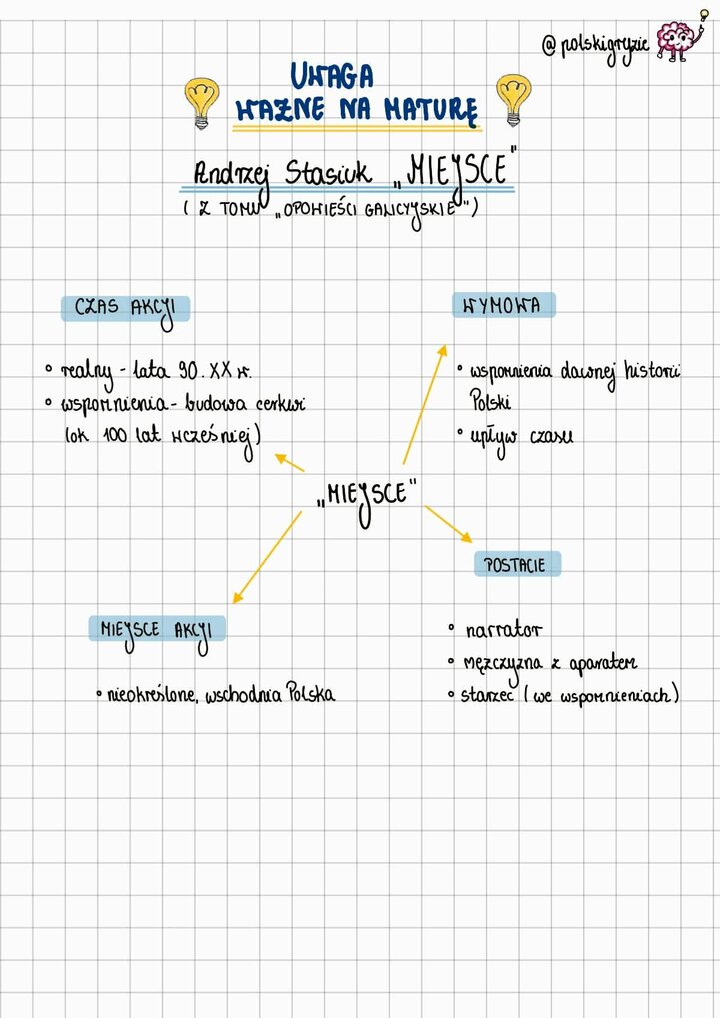 @polskigryzie
UWAGA
WAŻNE NA MATURĘ
Andrzej Stasiuk „MIEJSCE"
(Z TOMU „OPOWIEŚCI GALICYJSKIE")
CZAS AKCJI
• realny - lata 90. XX w.
• wspomnienia - budowa cerkwi
(ok 100 lat wcześniej)
WYMOWA
• wspomnienia dawnej historii
Polski
• upływ czasu
„MIEJSCE"
POSTACIE
• narrator
• mężczyzna z aparatem
• starzec (we wspomnieniach)
MIEJSCE AKCJI
• nieokreślone, wschodnia Polska